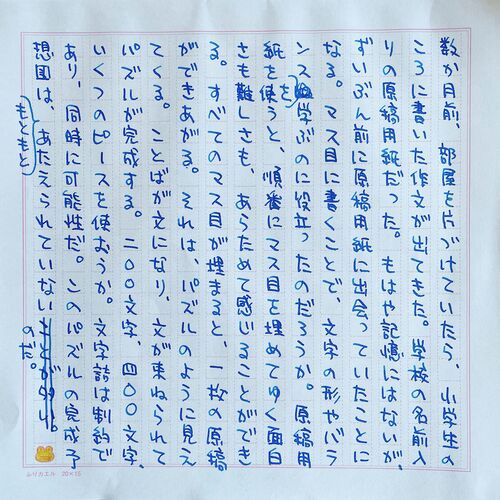 数か月前、部屋を片づけていたら、小学生の
ころに書いた作文が出てきた。学校の名前入
りの原稿用紙だった。もはや記憶にはないが、
ずいぶん前に原稿用紙に出会っていたことに
なる。マス目に書くことで、文字の形やバラ
ンスを学ぶのに役立ったのだろうか。原稿用
紙を使うと、順番にマス目を埋めてゆく面白
さも難しさも、あらためて感じることができ
る。すべてのマス目が埋まると、一枚の原稿
ができあがる。それは、パズルのように見え
てくる。ことばが文になり、文が束ねられて
パズルが完成する。二〇〇文字、四〇〇文字、
いくつのピースを使おうか。文字詰は制約で
あり、同時に可能性だ。このパズルの完成予
想図は、もともとあたえられていないのだ。
ふりカエル 20×15